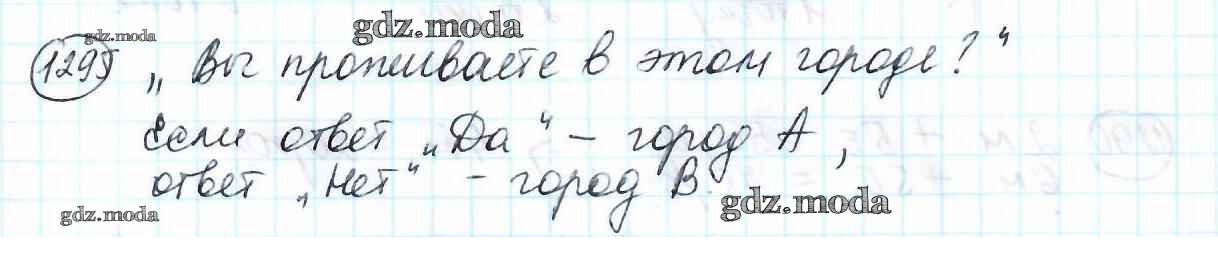 gdz.moda
gdz.moda
1295 „Вы проживаете в этом городе?“
Если ответ „Да“ – город А,
ответ „Нет“ – город В.
gdz.moda
gdz.moda